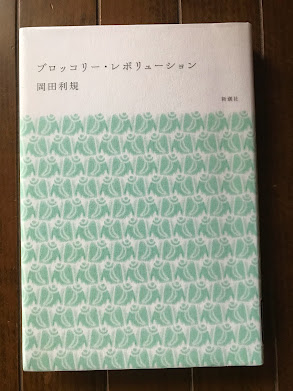 ブロッコリー・レボリューション
岡田利規
新潮社